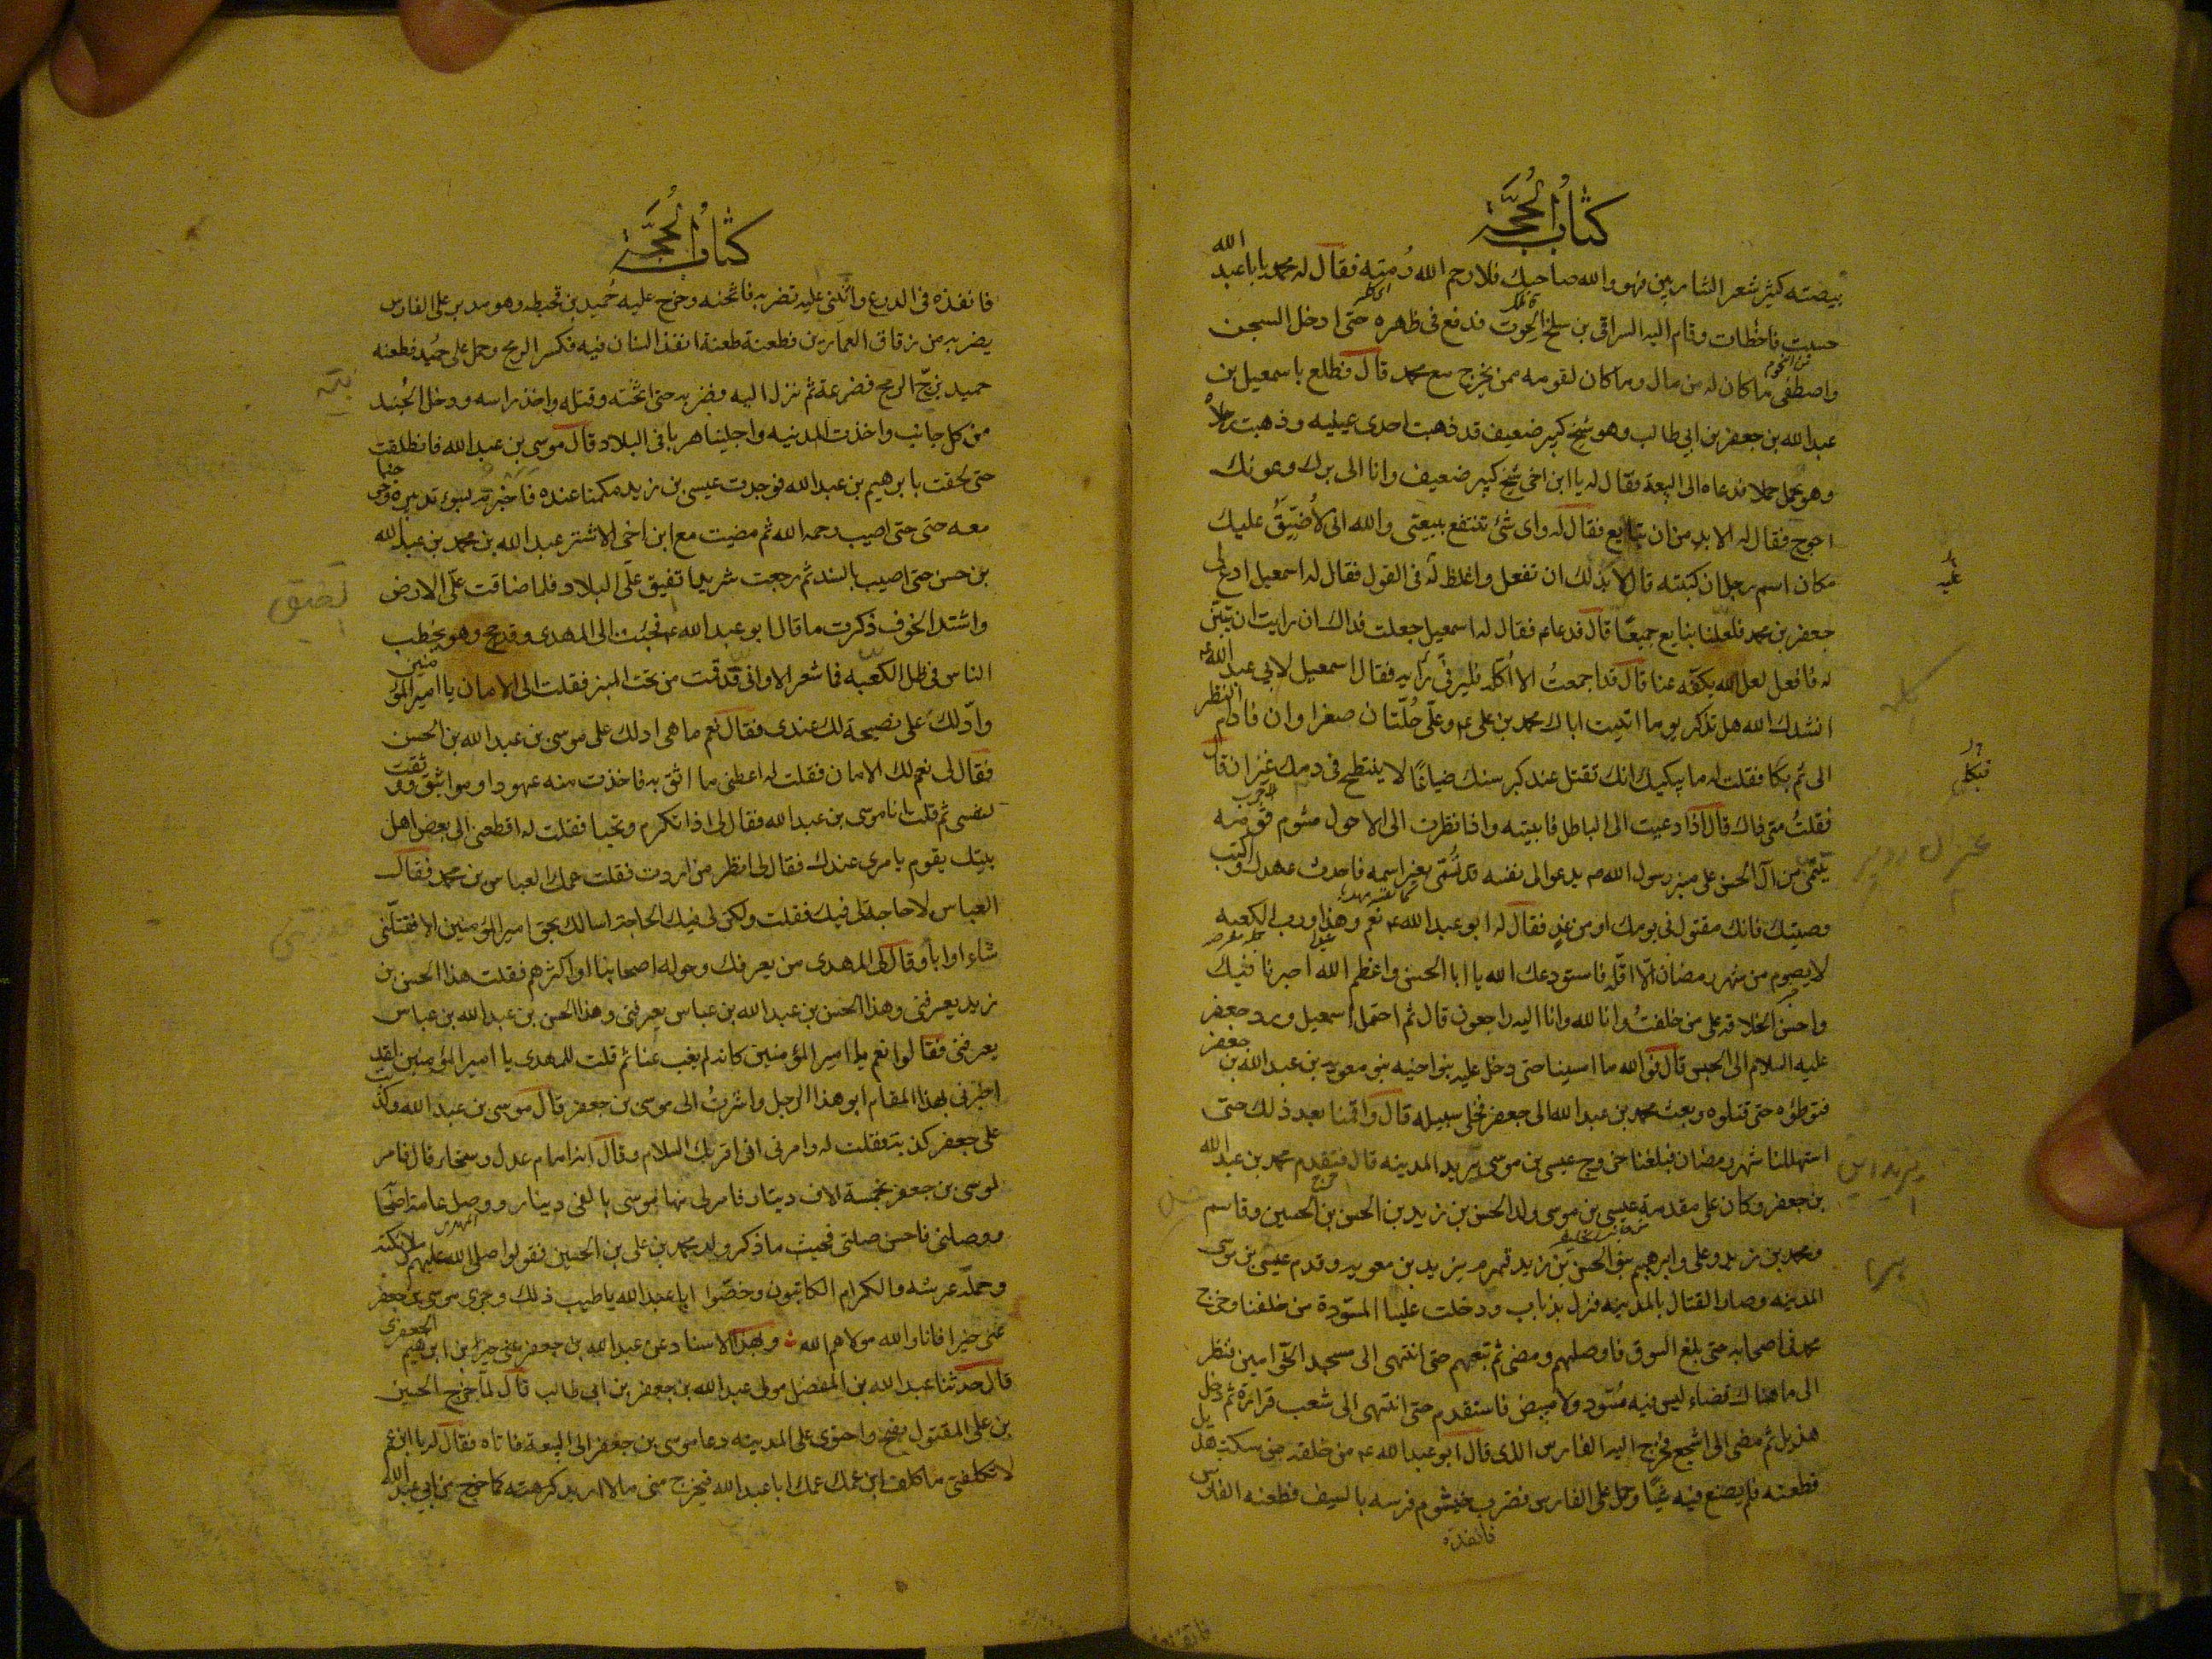 كتاب الحجة
بيضته كثير شعر الشاربين فهو والله صاحبك فلا رحم الله رمته فقال له محمد يا ابا عبد الله
حسبت فاخطات وقام اليه السراقي بن سلخ الحوت فدفع في ظهره حتى ادخل السجن
واصطفى ما كان له من مال وما كان لقومه ممن يخرج مع محمد قال فطلع باسمعيل بن
عبد الله بن جعفر بن ابي طالب وهو شيخ كبير ضعيف قد ذهبت احدى عينيه وذهبت رجلاه
وهو يحمل حملا فدعاه الى البيعة فقال له يا ابن اخي شيخ كبير ضعيف وانا الى برك وعونك
احوج فقال له لابد من ان تبايع فقال له واى شئ تنتفع ببيعتي والله انى لاضيق عليك
مكان اسم رجل ان كتبته قال لابد لك ان تفعل واغلظ له في القول فقال له اسمعيل ادع لى
جعفر بن محمد فلعلنا نبايع جميعا قال فدعا فقال له اسمعيل جعلت فداك ان رايت ان تبين
له فافعل لعل الله يكفه عنا قال قد اجمعت الا اكلمه فلير في رايه فقال اسمعيل لابي عبد الله
انشدك الله هل تذكر يوما اتيت اباك محمد بن على ع وعلى حلتان صفراوان فادام النظر
الى ثم بكا فقلت له ما يبكيك انك تقتل عند كبر سنك ضياعا لا ينتطح في دمك عنزان قال
فقلت متى ذاك قال اذا دعيت الى الباطل فابيته واذا نظرت الى الاحول مشوم قومه
يتمنى من آل الحسن على منبر رسول الله ص يدعو الى نفسه قد تسمى بغير اسمه فاحدث عهدك واكتب
وصيتك فانك مقتول في يومك او من غد فقال له ابو عبد الله ع نعم وهذا ورب الكعبه
لا يصوم من شهر رمضان الا اقله فاستودعك الله يا ابا الحسن واعظم الله اجرنا فيك
واحسن الخلافه على من خلفت وانا لله وانا اليه راجعون قال ثم احتمل اسمعيل ورد جعفر
عليه السلام الى الحبس قال فوالله ما امسينا حتى دخل عليه بنو اخيه بنو معويه بن عبد الله بن جعفر
فتوطؤه حتى قتلوه وبعث محمد بن عبد الله الى جعفر فخلى سبيله قال واقمنا بعد ذلك حتى
استهللنا شهر رمضان فبلغنا خروج عيسى بن موسى يريد المدينه قال فتقدم محمد بن عبد الله
بن جعفر وكان على مقدمة عيسى بن موسى ولد الحسن بن زيد بن الحسن بن الحسين وقاسم
ومحمد بن زيد وعلى وابرهيم بنو الحسن بن زيد فهزم يزيد بن معويه وقدم عيسى بن موسى
المدينه وصار القتال بالمدينه فنزل بذباب ودخلت علينا المسودة من خلفنا وخرج
محمد في اصحابه حتى بلغ السوق فاوصلهم ومضى ثم تبعهم حتى انتهى الى مسجد الخوامين فنظر
الى ما هناك فضاء ليس فيه مسود ولا مبيض فاستقدم حتى انتهى الى شعب فزارة ثم دخل
هذيل ثم مضى الى اشجع فخرج اليه الفارس الذى قال ابو عبد الله ع من خلفه من سكة هذيل
فطعنه فلم يصنع فيه شيا وحمل على الفارس فضرب خيشوم فرسه بالسيف فطعنه الفارس
فانفذه
كتاب الحجة
فانفذه في الدرع وانثنى عليه فضربه فاثخنه وخرج عليه حميد بن قحطبه وهو مدبر على الفارس
يضربه من زقاق العمارين فطعنه طعنة انفذ السنان فيه فكسر الرمح وحمل على حميد فطعنه
حميد بزج الرمح فصرعه ثم نزل اليه فضربه حتى اثخنه وقتله واخذ راسه ودخل الجند
من كل جانب واخذت المدنيه واجلينا هربا في البلاد قال موسى بن عبد الله فانطلقت
حتى لحقت بابرهيم بن عبد الله فوجدت عيسى بن زيد مكمنا عنده فاخبرته بسوء تدبيره وخرجنا
معه حتى حتى اصيب رحمه الله ثم مضيت مع ابن اخى الاشتر عبد الله بن محمد بن عبد الله
بن حسن حتى اصيب بالسند ثم رجعت شريدا تضيق على البلاد فلما ضاقت على الارض
واشتد الخوف ذكرت ما قال ابو عبد الله ع فجئت الى المهدى وقد حج وهو يخطب
الناس في ظل الكعبه فما شعر الا وانى قد قمت من تحت المنبر فقلت الى الامان يا امير المؤمنين
وادلك على نصيحة لك عندى فقال نعم ما هى ادلك على موسى بن عبد الله بن الحسن
فقال لى نعم لك الامان فقلت له اعطنى ما اثق به فاخذت منه عهودا ومواثيق ووثقت
لنفسى ثم قلت انا موسى بن عبد الله فقال لى اذا تكرم وتحبا فقلت له اقطعنى الى بعض اهل
بيتك يقوم بامرى عندك فقال لى انظر من اردت فقلت عمك العباس بن محمد فقال
العباس لا حاجة لى فيك فقلت ولكن لى فيك الحاجة اسالك بحق امير المؤمنين الا قبلتنى
شاء او ابا وقال لى المهدى من يعرفك وحوله اصحابنا او اكثرهم فقلت هذا الحسن بن
زيد يعرفنى وهذا الحسن بن عبد الله بن عباس يعرفنى وهذا الحسن بن عبد الله بن عباس
يعرفنى فقالوا نعم يا امير المؤمنين كانه لم يغب عنا ثم قلت للمهدى يا امير المؤمنين لقد
اخبرنى بهذا المقام ابو هذا الرجل واشرت الى موسى بن جعفر قال موسى بن عبد الله وكذبت
على جعفر كذبة فقلت له وامرنى ان اقريك السلام وقال انه امام عدل وسخاء قال فامر
لموسى بن جعفر بخمسة الاف دينار فامر لى منها موسى بالفى دينار ووصل عامة اصحابه
ووصلنى فاحسن صلتى فحيث ما ذكر ولد محمد بن على بن الحسين فقولوا صلى الله عليهم وملائكته
وحملة عرشه والكرام الكاتبون وخصوا ابا عبد الله باطيب ذلك وجزى موسى بن جعفر
عنى خيرا فانا والله مولاهم الله وبهذا الاسناد عن عبد الله بن جعفر بن ابرهيم الجعفرى
قال حدثنا عبد الله بن المفضل مولى عبد الله بن جعفر بن ابي طالب قال لما خرج الحسين
بن على المقتول بفخ واحتوى على المدينه دعا موسى بن جعفر الى البيعة فاتاه فقال له يا ابن عم
لا تكلفنى ما كلف ابن عمك عمك ابا عبد الله فيخرج منى ما لا اريد كرهته كما خرج من ابي عبد الله